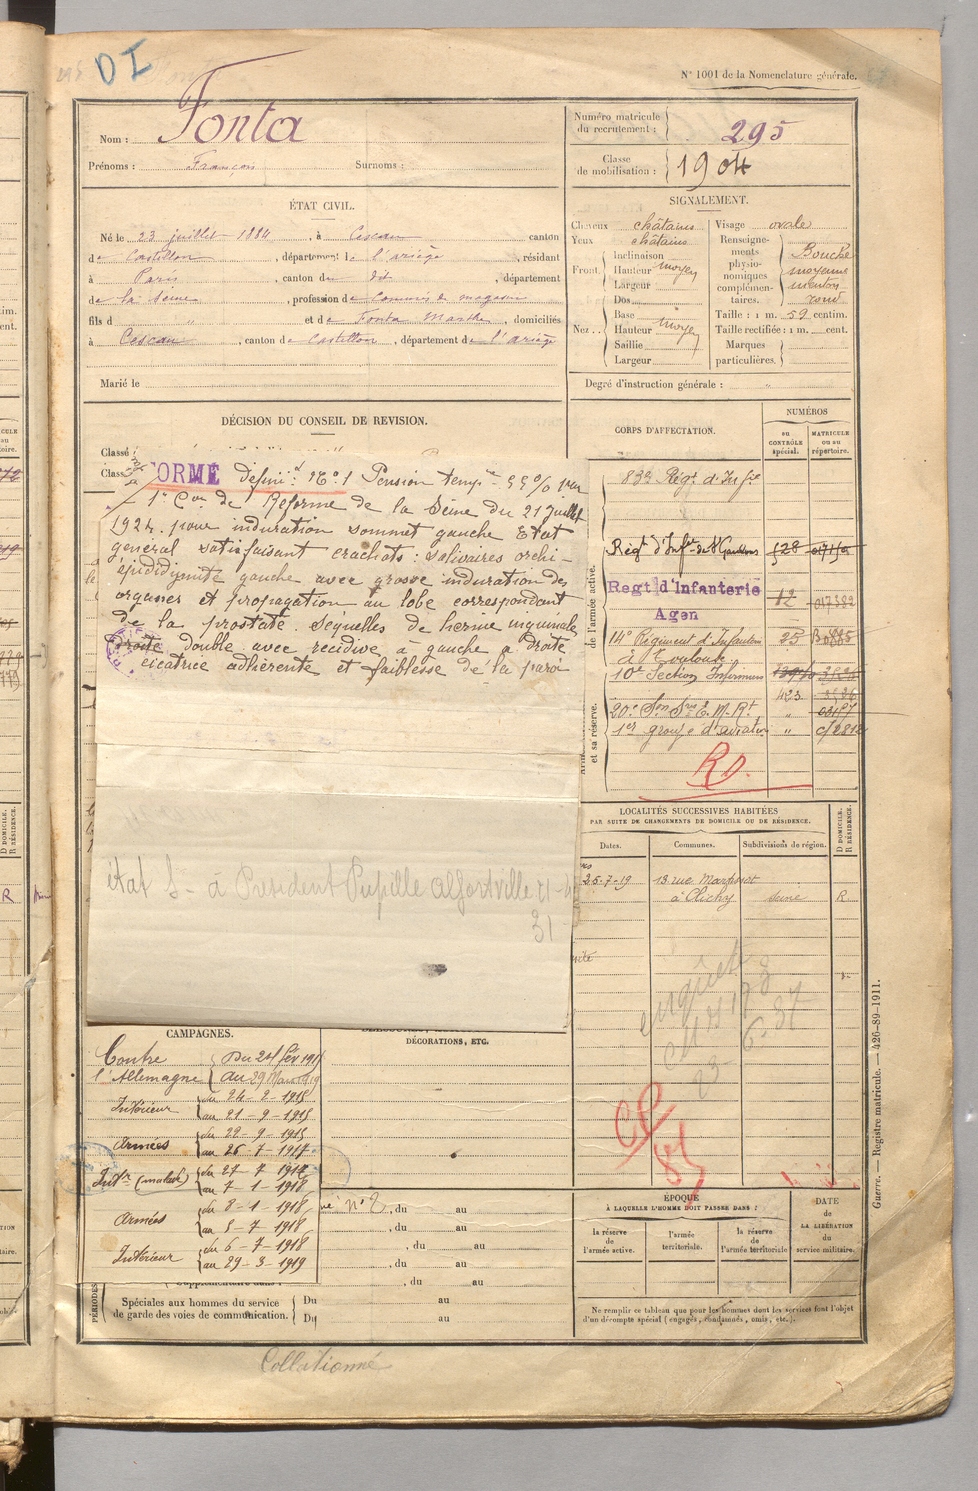 DI
N° 1001 de la Nomenclature générale.
Nom : Fonta
Prénoms : François Surnoms :
Numéro matricule du recrutement : 295
Classe de mobilisation : 1904
ÉTAT CIVIL.
Né le 23 juillet 1884, à Cescau canton
de Castillon, département de l'ariège, résidant
à Paris, canton de dt, département
de la Seine, profession de Commis de magasin
fils d " et de Fonta Marthe, domiciliés
à Cescau, canton de Castillon, département de l'ariège
Marié le
SIGNALEMENT.
Cheveux châtains
Yeux châtains
Front
Inclinaison
Hauteur moyen
Largeur
Dos
Nez
Base
Hauteur moyen
Saillie
Largeur
Visage ovale
Renseignements physionomiques complémentaires.
Bouche
moyenne
menton
rond
Taille : 1 m. 59 centim.
Taille rectifiée : 1 m. cent.
Marques particulières.
Degré d'instruction générale : "
DÉCISION DU CONSEIL DE REVISION.
Classé
Class
ORMÉ définit. N° 1 Pension temp. 55%
1re Con de Réforme de la Seine du 21 juillet
1924. pour induration sommet gauche Etat
général satisfaisant crachats : salivaires orchi-
épididymite gauche avec grosse induration des
organes et propagation au lobe correspondant
de la prostate. Sequelles de hernie inguinale
droite double avec recidive à gauche a droite
cicatrice adhérente et faiblesse de la paroi
état S - à Président Pupille alfortville
31
CORPS D'AFFECTATION.
NUMÉROS
au CONTRÔLE spécial.
MATRICULE ou au répertoire.
de l'armée active.
et sa réserve.
83e Régt d'Infie
Régt d'Infie de St Gaudens 528
Regt d'Infanterie 12
Agen
14e Régiment d'Infanterie 25
à Toulouse
10e Section Infirmiers
423
20e Son Sres E. M. Rt "
1er groupe d'aviation " c/2812
RD.
LOCALITÉS SUCCESSIVES HABITÉES
PAR SUITE DE CHANGEMENTS DE DOMICILE OU DE RÉSIDENCE.
Dates. Communes. Subdivisions de région.
D DOMICILE.
R RÉSIDENCE.
25-7-19 13 rue
à Clichy Seine R
enquête
CAMPAGNES.
Contre
l'Allemagne
Du 24 fév 1915
au 29 Mars 1919
Intérieur du 24-2-1915
au 21-9-1915
Armées du 22-9-1915
au 26-7-1917
Intr (malade) du 27-7-1917
au 7-1-1918
Armées du 8-1-1918
au 5-7-1918
Intérieur du 6-7-1918
au 29-3-1919
DÉCORATIONS, ETC.
n° 2, du au
, du au
, du au
, du au
, du au
Supplémentaire dans
PÉRIODES
Spéciales aux hommes du service
de garde des voies de communication.
Du au
Du au
ÉPOQUE
À LAQUELLE L'HOMME DOIT PASSER DANS :
la réserve de l'armée active.
l'armée territoriale.
la réserve de l'armée territoriale
DATE DE LA LIBÉRATION du service militaire.
Ne remplir ce tableau que pour les hommes dont les services font l'objet
d'un décompte spécial (engagés, condamnés, omis, etc.).
Guerre. — Registre matricule. — 426-89-1911.
Collationné